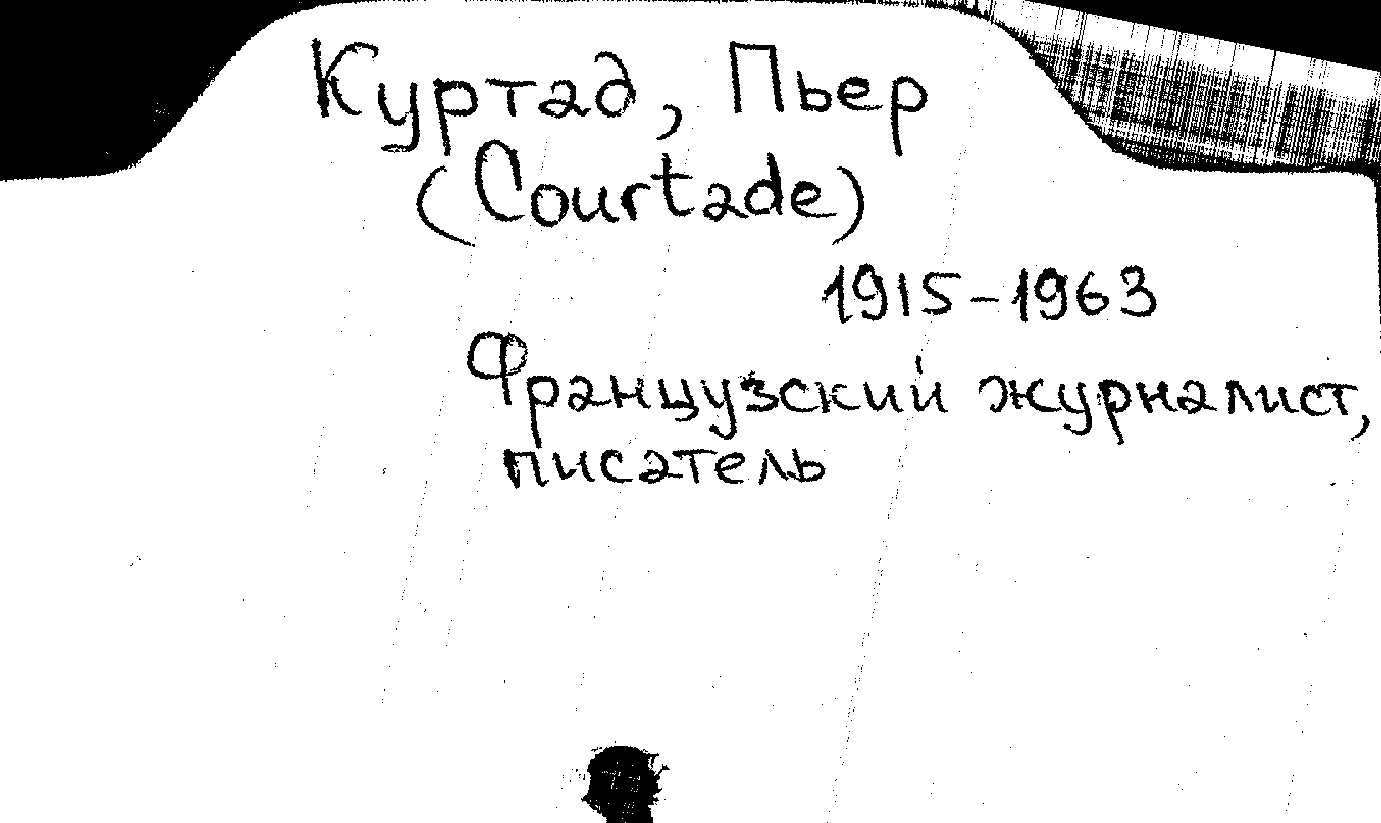 Куртад, Пьер
(Courtade)
1915-1963
Французский журналист,
писатель